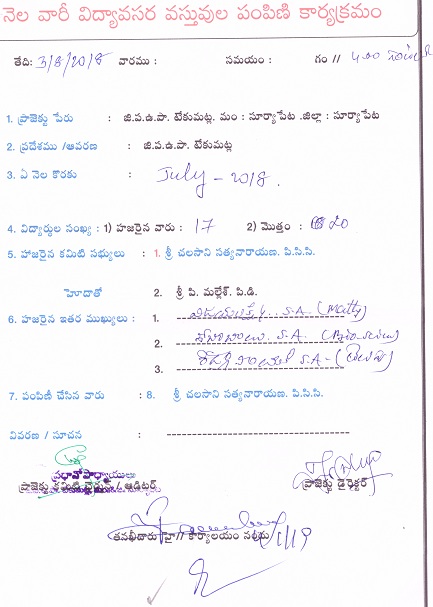 నెల వారీ విద్యావసర వస్తువుల పంపిణి కార్యక్రమం
తేది: 3/8/2018 వారము : సమయం : గం // 4.00
1. ప్రాజెక్టు పేరు : జి.ప.ఉ.పా. టేకుమట్ల. మం : సూర్యాపేట .జిల్లా : సూర్యాపేట
2. ప్రదేశము /ఆవరణ : జి.ప.ఉ.పా. టేకుమట్ల
3. ఏ నెల కొరకు : July - 2018.
4. విద్యార్థుల సంఖ్య : 1) హజరైన వారు : 17 2) మొత్తం : 20
5. హాజరైన కమిటి సభ్యులు : 1. శ్రీ చలసాని సత్యనారాయణ. పి.సి.సి.
హెూదాతో 2. శ్రీ పి. మల్లేశ్. పి.డి.
6. హజరైన ఇతర ముఖ్యులు : 1. S.A. (Maths)
2. S.A. (Bio-science)
3. S.A - (తెలుగు)
7. పంపిణీ చేసిన వారు : 8. శ్రీ చలసాని సత్యనారాయణ. పి.సి.సి.
వివరణ / సూచన :
ప్రధానోపాధ్యాయులు
ప్రాజెక్టు కమిటి చైర్మన్ / ఆడిటర్ ప్రాజెక్టు డైరెక్టర్
తనఖీదారు హై// కార్యాలయం సభ్యు